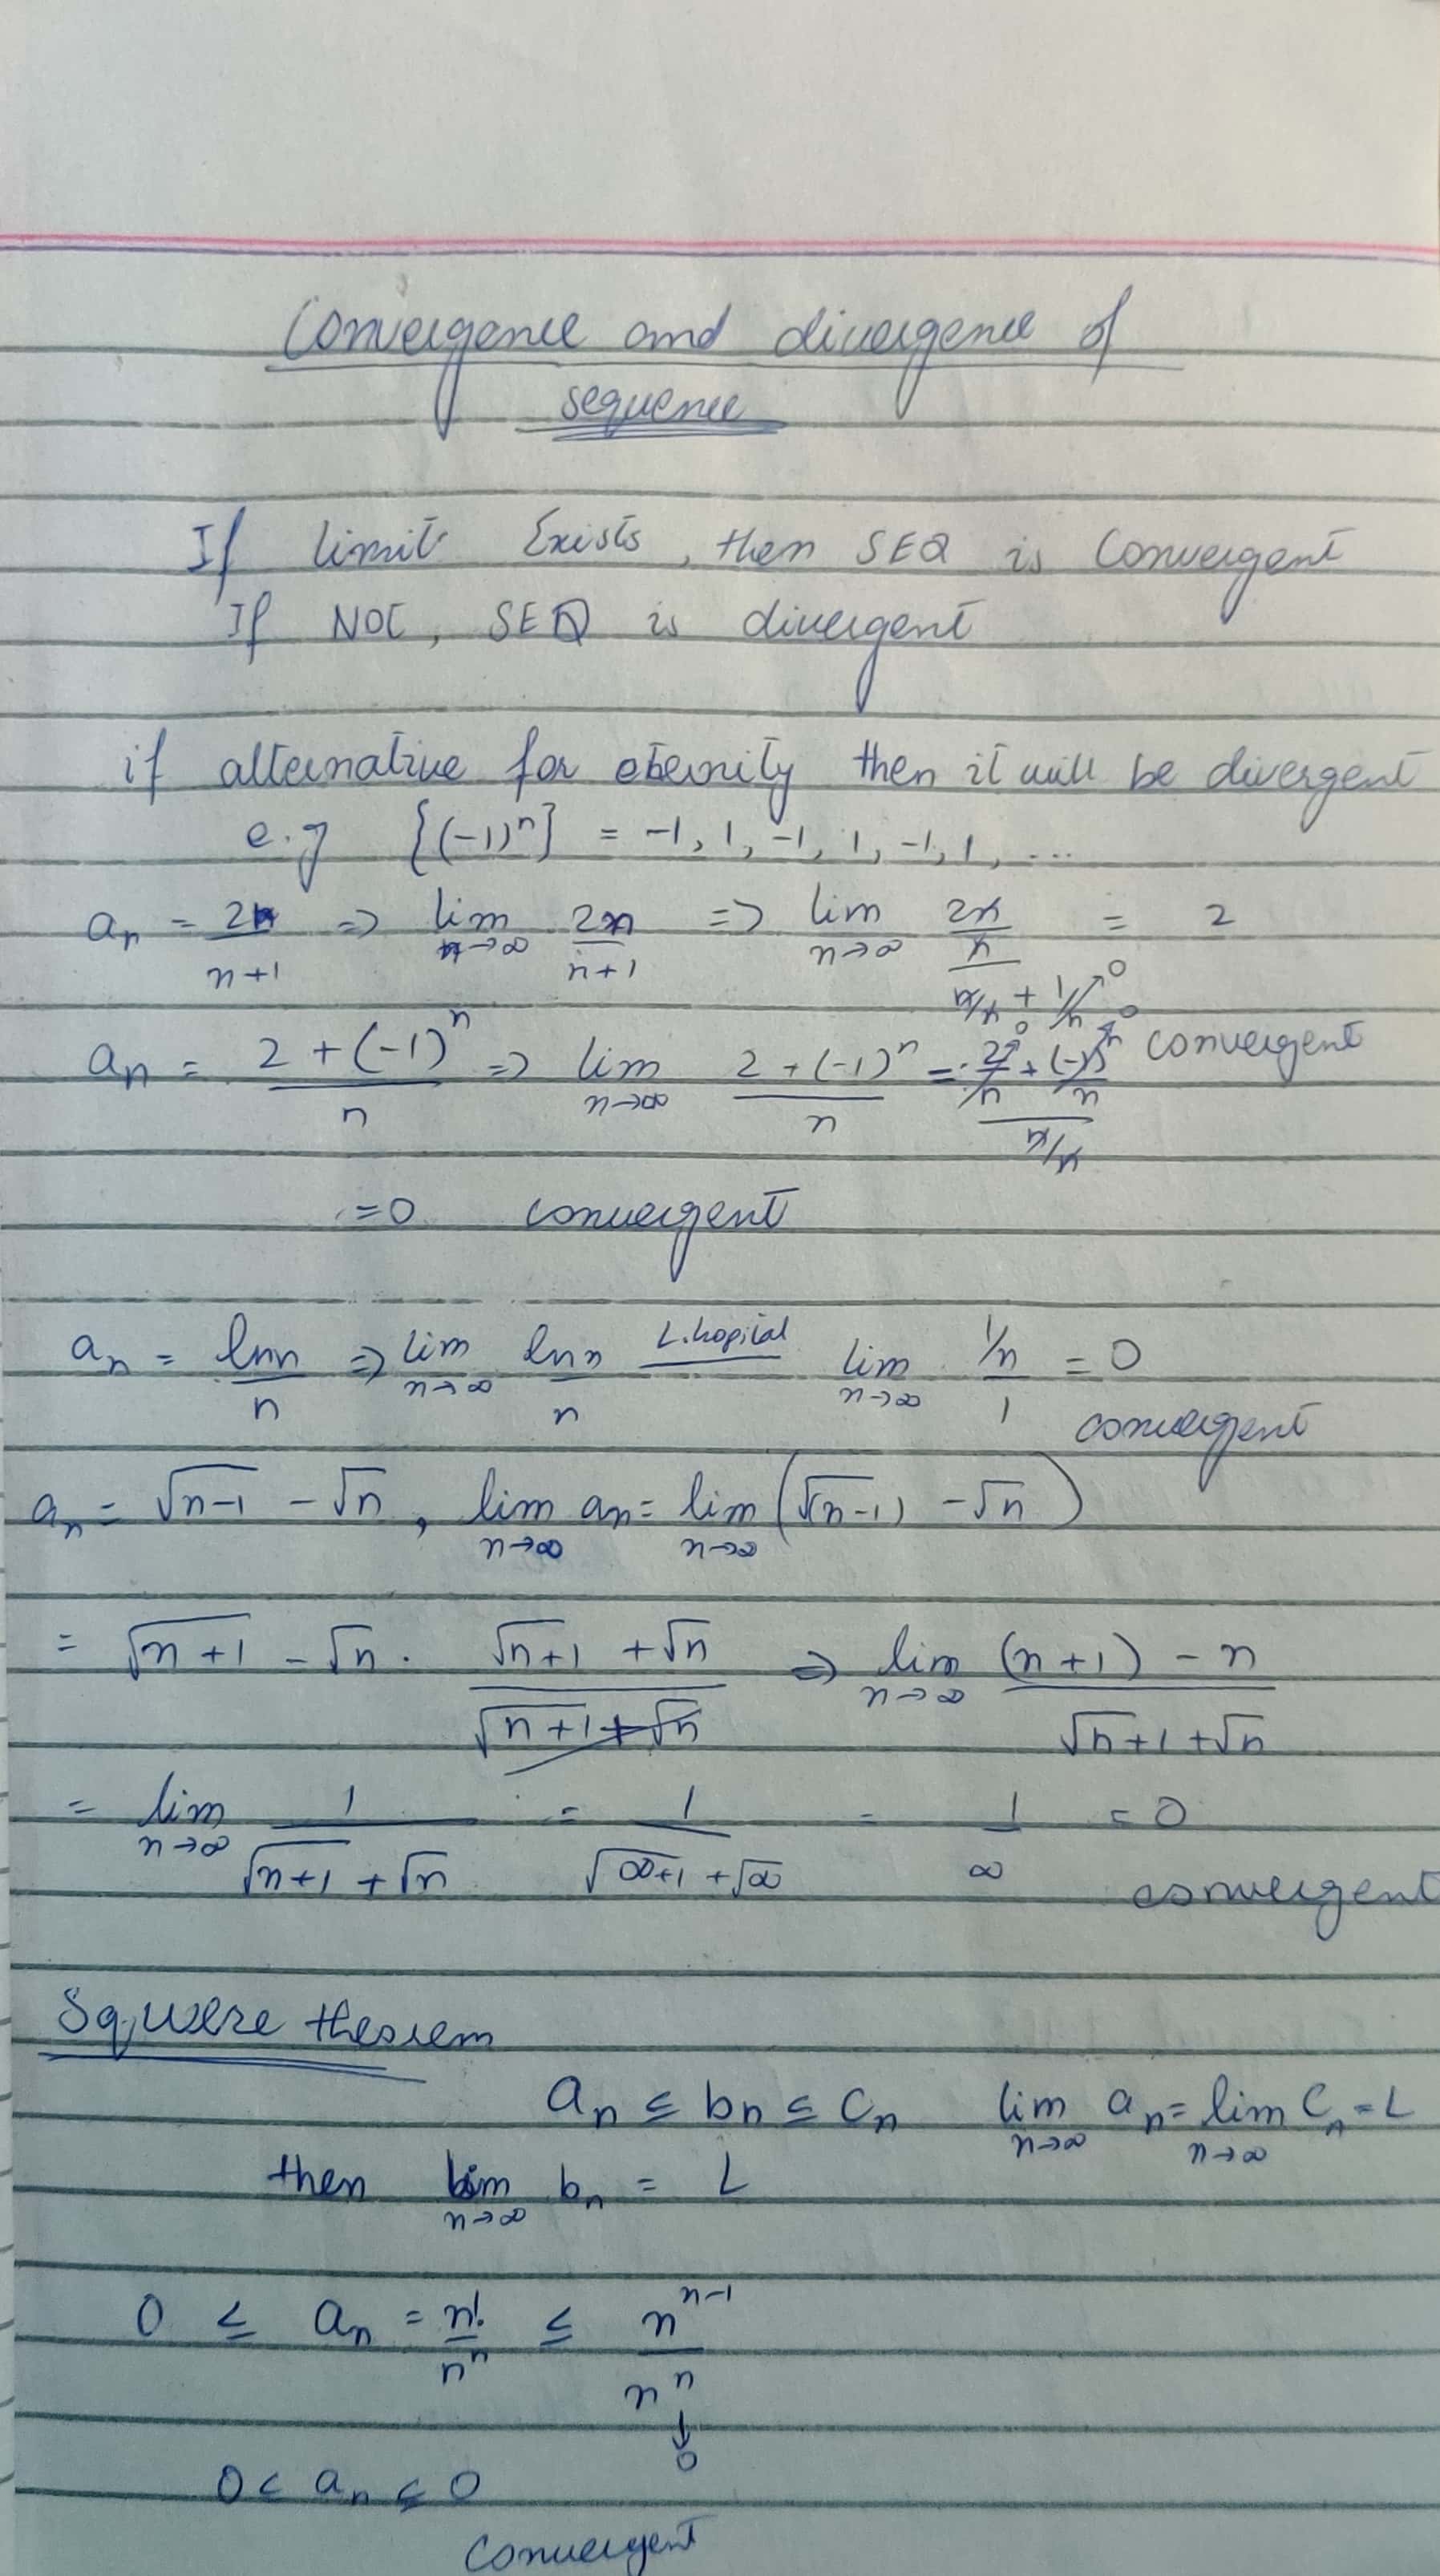 Convergence and divergence of
sequence
If limit Exists, then SEQ is Convergent
If NOt, SEQ is divergent
if alternative for eternity then it will be divergent
e.g {(-1)^n} = -1, 1, -1, 1, -1, 1, ...
a_n = 2n/(n+1) => lim n→∞ 2n/(n+1) => lim n→∞ (2n/n)/(n/n + 1/n → 0) = 2
convergent
a_n = (2 + (-1)^n)/n => lim n→∞ (2 + (-1)^n)/n = (2/n → 0 + (-1)^n/n → 0)/(n/n)
= 0 convergent
a_n = ln n/n => lim n→∞ ln n/n L.hopital lim n→∞ (1/n)/1 = 0
convergent
a_n = √(n-1) - √n, lim n→∞ a_n = lim n→∞ (√(n-1) - √n)
= √(n+1) - √n · (√(n+1) + √n)/(√(n+1) + √n) => lim n→∞ ((n+1) - n)/(√(n+1) + √n)
= lim n→∞ 1/(√(n+1) + √n) = 1/(√(∞+1) + √∞) = 1/∞ = 0
convergent
Squwere theorem
a_n ≤ b_n ≤ c_n lim n→∞ a_n = lim n→∞ C_n = L
then lim n→∞ b_n = L
0 ≤ a_n = n!/n^n ≤ n^(n-1)/n^n
↓
0
0 < a_n ≤ 0
Convergent